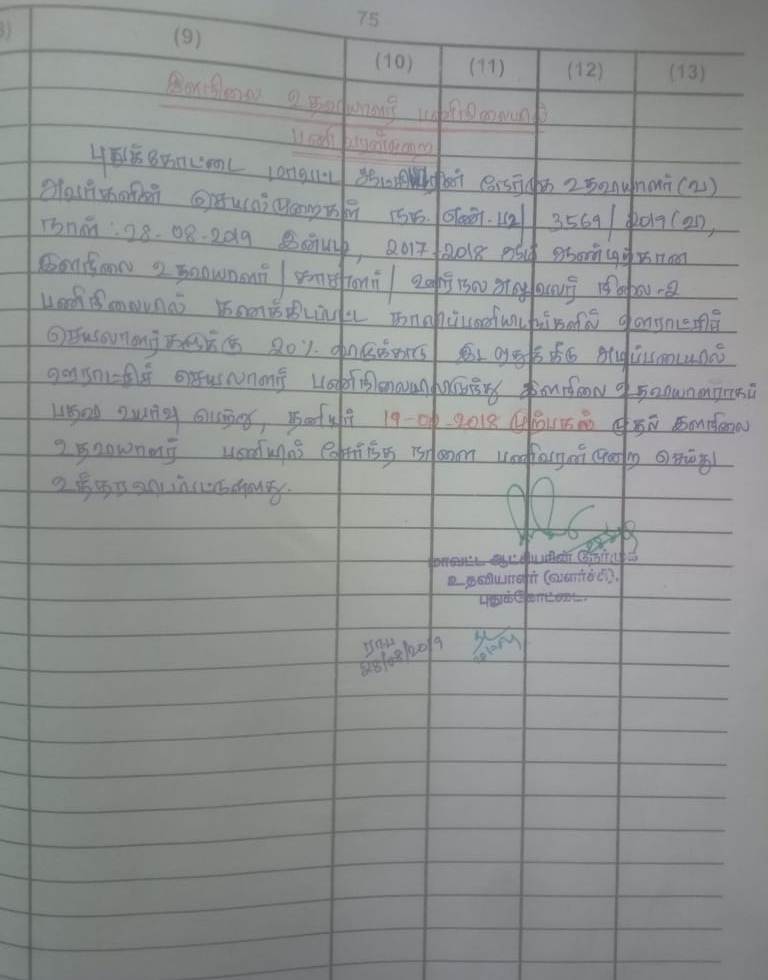 75
(9) (10) (11) (12) (13)
இளநிலை உதவியாளர் பணிநிலையில்
பணி வரன்முறை
புதுக்கோட்டை மாவட்ட நேர்முக உதவியாளர் (வ)
அவர்களின் செயல்முறைகள் ந.க. எண். 3569/2019 (வ),
நாள் : 28.08.2019 இன்படி, 2017-2018 ஆம் ஆண்டிற்கான
இளநிலை உதவியாளர் / காசாளர் / ஊர்நல அலுவலர் நிலை-2
பணிநிலையில் கணக்கிடப்பட்ட காலிப்பணியிடங்களில் ஊராட்சிச்
செயலாளர்களுக்கு 20% இட ஒதுக்கீடு அடிப்படையில்
ஊராட்சிச் செயலாளர் பணிநிலையிலிருந்து இளநிலை உதவியாளராகப்
பதவி உயர்வு பெற்று, தனியர் முற்பகல் முதல் இளநிலை
உதவியாளர் பணியில் சேர்ந்த நாளை பணிவரன்முறை செய்து
உத்தரவிடப்பட்டுள்ளது.
மாவட்ட ஆட்சியரின் நேர்முக
உதவியாளர் (வளர்ச்சி),
புதுக்கோட்டை.
28/08/2019